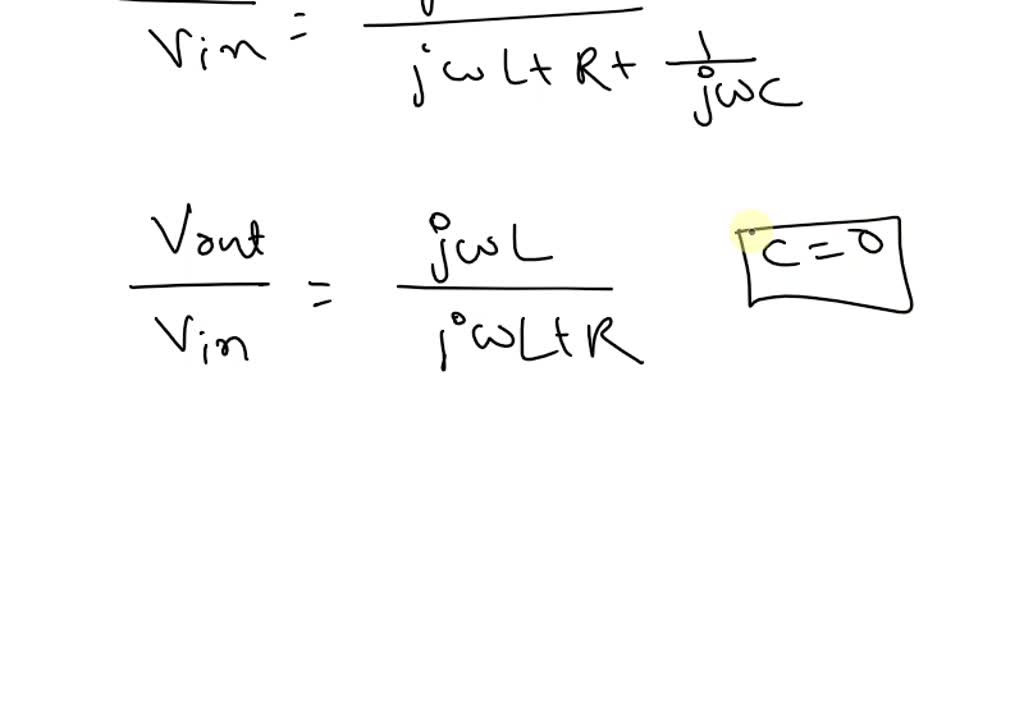 Vin = jωL+R+ 1/jωC
Vout/Vin = jωL/jωL+R
C=0